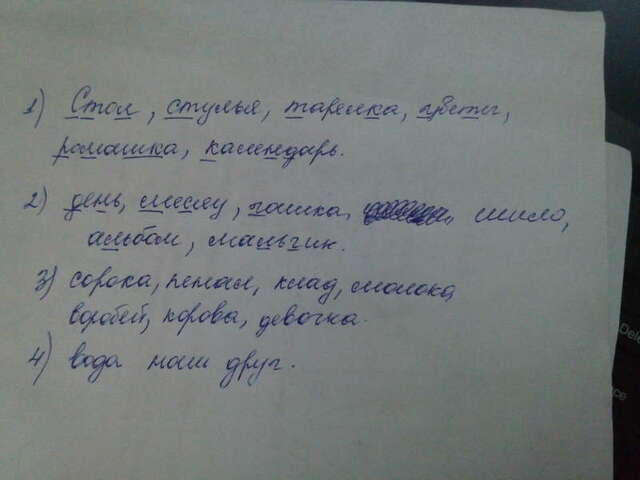 1) Стол, стулья, тарелка, цветы,
ромашка, календарь.
2) день, чашка, шило,
альбом, мальчик.
3) сорока, пенал, клад, молоко
воробей, корова, девочка.
4) вода наш друг.
Dele